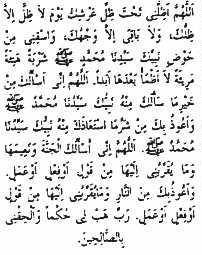 اللَّهُمَّ أَظِلَّنِي تَحْتَ ظِلِّ عَرْشِكَ يَوْمَ لَا ظِلَّ إِلَّا
ظِلُّكَ، وَلَا بَاقِيَ إِلَّا وَجْهُكَ، وَاسْقِنِي مِنْ
حَوْضِ نَبِيِّكَ سَيِّدِنَا مُحَمَّدٍ ﷺ شَرْبَةً هَنِيئَةً
مَرِيئَةً لَا أَظْمَأُ بَعْدَهَا أَبَدًا. اللَّهُمَّ إِنِّي أَسْأَلُكَ مِنْ
خَيْرِ مَا سَأَلَكَ مِنْهُ نَبِيُّكَ سَيِّدُنَا مُحَمَّدٌ ﷺ
وَأَعُوذُ بِكَ مِنْ شَرِّ مَا اسْتَعَاذَكَ مِنْهُ نَبِيُّكَ سَيِّدُنَا
مُحَمَّدٌ ﷺ. اللَّهُمَّ إِنِّي أَسْأَلُكَ الْجَنَّةَ وَنَعِيمَهَا
وَمَا يُقَرِّبُنِي إِلَيْهَا مِنْ قَوْلٍ أَوْ فِعْلٍ أَوْ عَمَلٍ.
وَأَعُوذُ بِكَ مِنَ النَّارِ وَمَا يُقَرِّبُنِي إِلَيْهَا مِنْ قَوْلٍ
أَوْ فِعْلٍ أَوْ عَمَلٍ. رَبِّ هَبْ لِي حُكْمًا وَأَلْحِقْنِي
بِالصَّالِحِينَ.